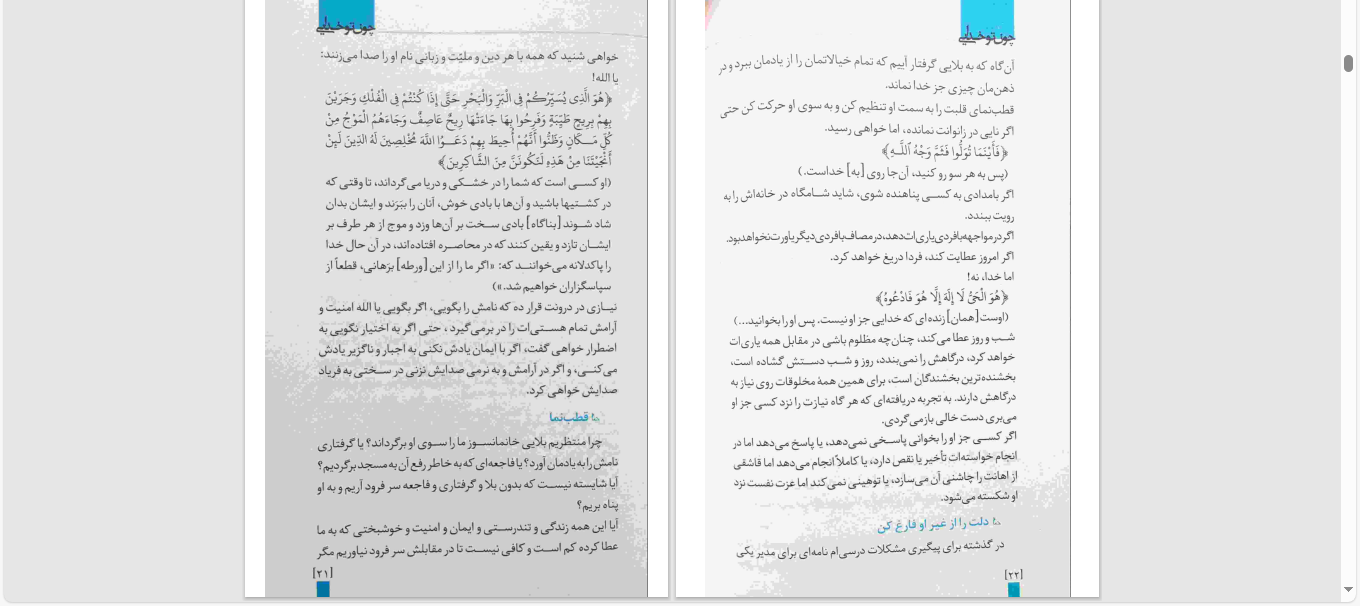 چون تو خدایی
خواهی شنید که همه با هر دین و ملیّت و زبانی نام او را صدا می‌زنند:
یا الله!
﴿هُوَ الَّذِی یُسَیِّرُکُمْ فِی الْبَرِّ وَالْبَحْرِ حَتَّی إِذَا کُنْتُمْ فِی الْفُلْکِ وَجَرَیْنَ
بِهِمْ بِرِیحٍ طَیِّبَةٍ وَفَرِحُوا بِهَا جَاءَتْهَا رِیحٌ عَاصِفٌ وَجَاءَهُمُ الْمَوْجُ مِنْ
کُلِّ مَکَانٍ وَظَنُّوا أَنَّهُمْ أُحِیطَ بِهِمْ دَعَوُا اللَّهَ مُخْلِصِینَ لَهُ الدِّینَ لَئِنْ
أَنْجَیْتَنَا مِنْ هَذِهِ لَنَکُونَنَّ مِنَ الشَّاکِرِینَ﴾
(او کسی است که شما را در خشکی و دریا می‌گرداند، تا وقتی که
در کشتیها باشید و آن‌ها با بادی خوش، آنان را ببَرَند و ایشان بدان
شاد شوند [بناگاه] بادی سخت بر آن‌ها وزد و موج از هر طرف بر
ایشان تازد و یقین کنند که در محاصره افتاده‌اند، در آن حال خدا
را پاکدلانه می‌خوانند که: «اگر ما را از این [ورطه] برَهانی، قطعاً از
سپاسگزاران خواهیم شد.»)
نیازی در درونت قرار ده که نامش را بگویی، اگر بگویی یا الله امنیت و
آرامش تمام هستی‌ات را در برمی‌گیرد ، حتی اگر به اختیار نگویی به
اضطرار خواهی گفت، اگر با ایمان یادش نکنی به اجبار و ناگزیر یادش
می‌کنی، و اگر در آرامش و به نرمی صدایش نزنی در سختی به فریاد
صدایش خواهی کرد.
قطب‌نما
چرا منتظریم بلایی خانمانسوز ما را سوی او برگرداند؟ یا گرفتاری
نامش را به یادمان آورد؟ یا فاجعه‌ای که به خاطر رفع آن به مسجد برگردیم؟
آیا شایسته نیست که بدون بلا و گرفتاری و فاجعه سر فرود آریم و به او
پناه بریم؟
آیا این همه زندگی و تندرستی و ایمان و امنیت و خوشبختی که به ما
عطا کرده کم است و کافی نیست تا در مقابلش سر فرود نیاوریم مگر
[۲۱]
چون تو خدایی
آن‌گاه که به بلایی گرفتار آییم که تمام خیالاتمان را از یادمان ببرد و در
ذهن‌مان چیزی جز خدا نماند.
قطب‌نمای قلبت را به سمت او تنظیم کن و به سوی او حرکت کن حتی
اگر نایی در زانوانت نمانده، اما خواهی رسید.
﴿فَأَیْنَمَا تُوَلُّوا فَثَمَّ وَجْهُ ٱللَّهِ﴾
(پس به هر سو رو کنید، آن‌جا روی [به] خداست.)
اگر بامدادی به کسی پناهنده شوی، شاید شامگاه در خانه‌اش را به
رویت ببندد.
اگر در مواجهه با فردی یاری‌ات دهد، در مصاف با فردی دیگر یاورت نخواهد بود.
اگر امروز عطایت کند، فردا دریغ خواهد کرد.
اما خدا، نه!
﴿هُوَ الْحَیُّ لَا إِلَهَ إِلَّا هُوَ فَادْعُوهُ﴾
(اوست [همان] زنده‌ای که خدایی جز او نیست. پس او را بخوانید...)
شب و روز عطا می‌کند، چنان‌چه مظلوم باشی در مقابل همه یاری‌ات
خواهد کرد، درگاهش را نمی‌بندد، روز و شب دستش گشاده است،
بخشنده‌ترین بخشندگان است، برای همین همهٔ مخلوقات روی نیاز به
درگاهش دارند. به تجربه دریافته‌ای که هر گاه نیازت را نزد کسی جز او
می‌بری دست خالی بازمی‌گردی.
اگر کسی جز او را بخوانی پاسخی نمی‌دهد، یا پاسخ می‌دهد اما در
انجام خواسته‌ات تأخیر یا نقص دارد، یا کاملاً انجام می‌دهد اما قاشقی
از اهانت را چاشنی آن می‌سازد، یا توهینی نمی‌کند اما عزت نفست نزد
او شکسته می‌شود.
دلت را از غیر او فارغ کن
در گذشته برای پیگیری مشکلات درسی‌ام نامه‌ای برای مدیر یکی
[۲۲]